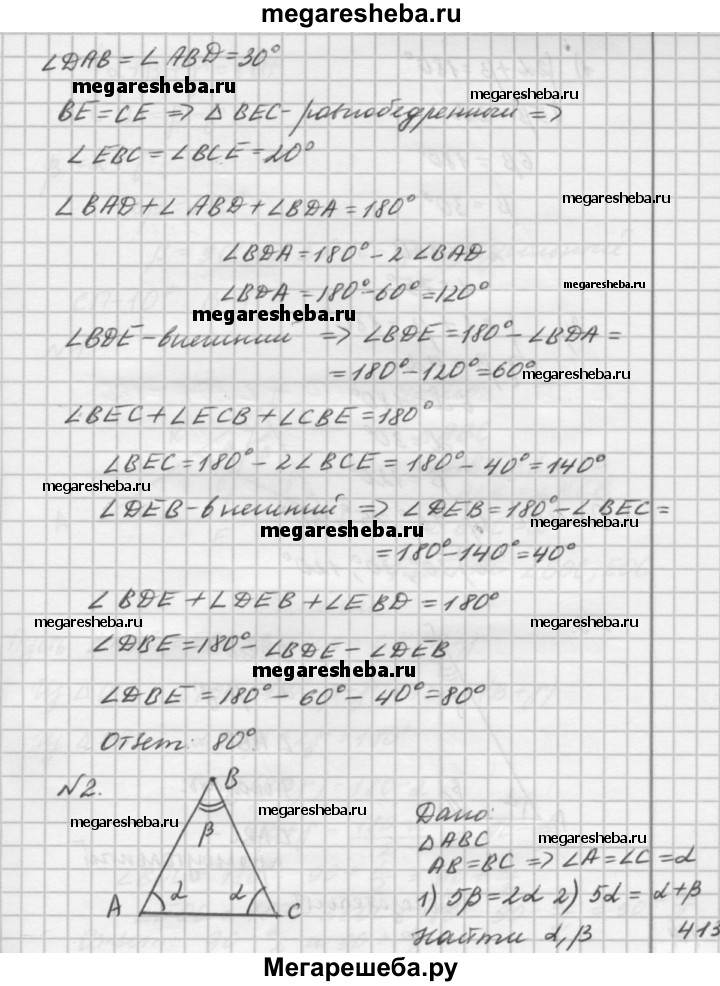 megaresheba.ru
∠DAB = ∠ABD = 30°
megaresheba.ru
megaresheba.ru
BE = CE => △BEC - равнобедренный =>
∠EBC = ∠BCE = 20°
megaresheba.ru
∠BAD + ∠ABD + ∠BDA = 180°
∠BDA = 180° - 2∠BAD
megaresheba.ru
∠BDA = 180° - 60° = 120°
megaresheba.ru
∠BDE - внешний => ∠BDE = 180° - ∠BDA =
= 180° - 120° = 60°
megaresheba.ru
∠BEC + ∠ECB + ∠CBE = 180°
∠BEC = 180° - 2∠BCE = 180° - 40° = 140°
megaresheba.ru
∠DEB - внешний => ∠DEB = 180° - ∠BEC =
megaresheba.ru
megaresheba.ru
= 180° - 140° = 40°
∠BDE + ∠DEB + ∠EBD = 180°
megaresheba.ru
megaresheba.ru
∠DBE = 180° - ∠BDE - ∠DEB
megaresheba.ru
∠DBE = 180° - 60° - 40° = 80°
Ответ: 80°.
№2.
B
β
A
α
α
C
megaresheba.ru
megaresheba.ru
Дано:
△ABC
megaresheba.ru
AB = BC => ∠A = ∠C = α
1) 5β = 2α 2) 5α = α + β
Найти α, β
413
Мегарешеба.ру